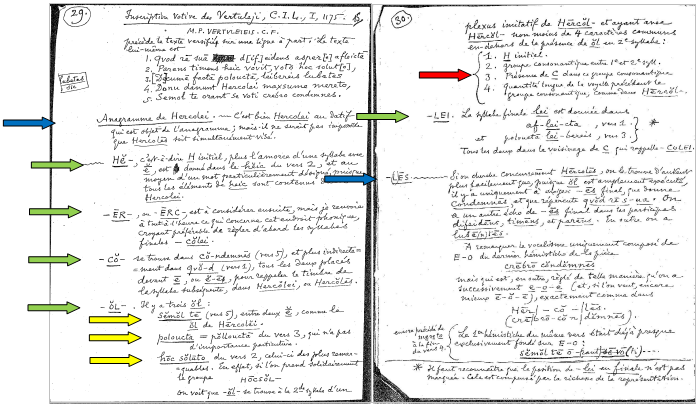 29.
Inscription votive des Vertuleji, C.I.L., I, 1175.
M.P. VERTVLEIEIS. C.F.
précède le texte versifié sur une ligne à part. Le texte
lui-même est
1. Quod re sua d[if]eidens asper[e] afleicta
2. Parens timens heic vovit, voto hoc solut[o],
3. Decuma facta poloucta, leibereis lubetes
4. Donu danunt Hercolei maxsume mereto,
5. Semol te orant se voti crebro condemnes.
lubetes
Anagramme de Hercolei. — C'est bien Hercolei au datif
qui est objet de l'anagramme; mais il ne serait pas impossible
que Hercolēs soit simultanément visé.
- HĔ -, c'est-à-dire H initial, plus l'amorce d'une syllabe avec
ĕ, est donné dans le hĕic du vers 2, et au
moyen d'un mot particulièrement désigné, puisque
tous les éléments de heic sont contenus
Hercolei.
- ER -, ou - ERC - est à considérer ensuite, mais je renvoie
à tout à l'heure ce qui concerne cet endroit phonique,
croyant préférable de régler d'abord les syllabes
finales - cŏlei.
- CŎ - se trouve dans Cŏ-ndemnēs (vers 5), et plus indirecte=
=ment dans quŏ-d (vers 1), tous les deux placés
devant ē, ou ē-ĕs, pour rappeler le timbre de
la syllabe subséquente, dans Hercŏlei, ou Hercŏlēs.
- ŎL - Il y a trois ŏl:
sĕmŏl tē (vers 5), entre deux ĕ, comme la
ŏl de Hercŏlei.
poloucta = pŏlloucta du vers 3, qui n'a pas
d'importance particulière.
hŏc sŏlūto du vers 2, celui-ci des plus remar-
quables. En effet, si l'on prend solidairement
le groupe HŎCSŎL-
on voit que -ŏl- se trouve à la 2de syllabe d'un
30.
plexus imitatif de Hĕrcŏl- et ayant avec
Hĕrcŏl- non moins de 4 caractères communs
en dehors de la présence de ŏl en 2e syllabe:
1. H initial.
2. groupe consonantique entre 1e et 2e syll.
3. Présence de C dans ce groupe consonantique
4. Quantité longue de la voyelle précédant le
groupe consonantique, comme dans Hērcŏl-.
- LEI. La syllabe finale lei est donnée dans
af-lei-cta, vers 1.
et poloucta lei-bereis, vers 3.
*
Tous les deux dans le voisinage de C qui rappelle - CŏLEI.
- LĒS Si on cherche concurremment Hercolēs, on le trouve d'autant
plus facilement que, puisque ŏl est amplement exécuté,
il n'y a uniquement à exiger - ēs final, que donne
Condemnēs et que répercute quŏd rē s-ua. On
a un autre écho de - ēs final dans les participes
difeidēns, timēns, et parēns. En outre on a
lubē(n)tēs.
A remarquer le vocalisme uniquement composé de
E-O du dernier hémistiche de la pièce
crēbrō cŏndĕmnēs
mais qui est, en outre, réglé de telle manière qu'on a
successivement ē-o-ē (et, si l'on veut, encore
mieux ē-ŏ-ē), exactement comme dans
HĔR | - CŎ - | LĒS.
(crē|brōcŏn|dĕmnēs).
encore précédé de
mereto
à la fin
du vers 4.
Le 1er hémistiche du même vers était déjà presque
exclusivement fondé sur E-O:
sĕmŏl tē ō-rant sē vō(ti)....
* Il faut reconnaître que la position de - lei en finale n'est pas
marquée. Cela est compensé par la richesse de la représentation.